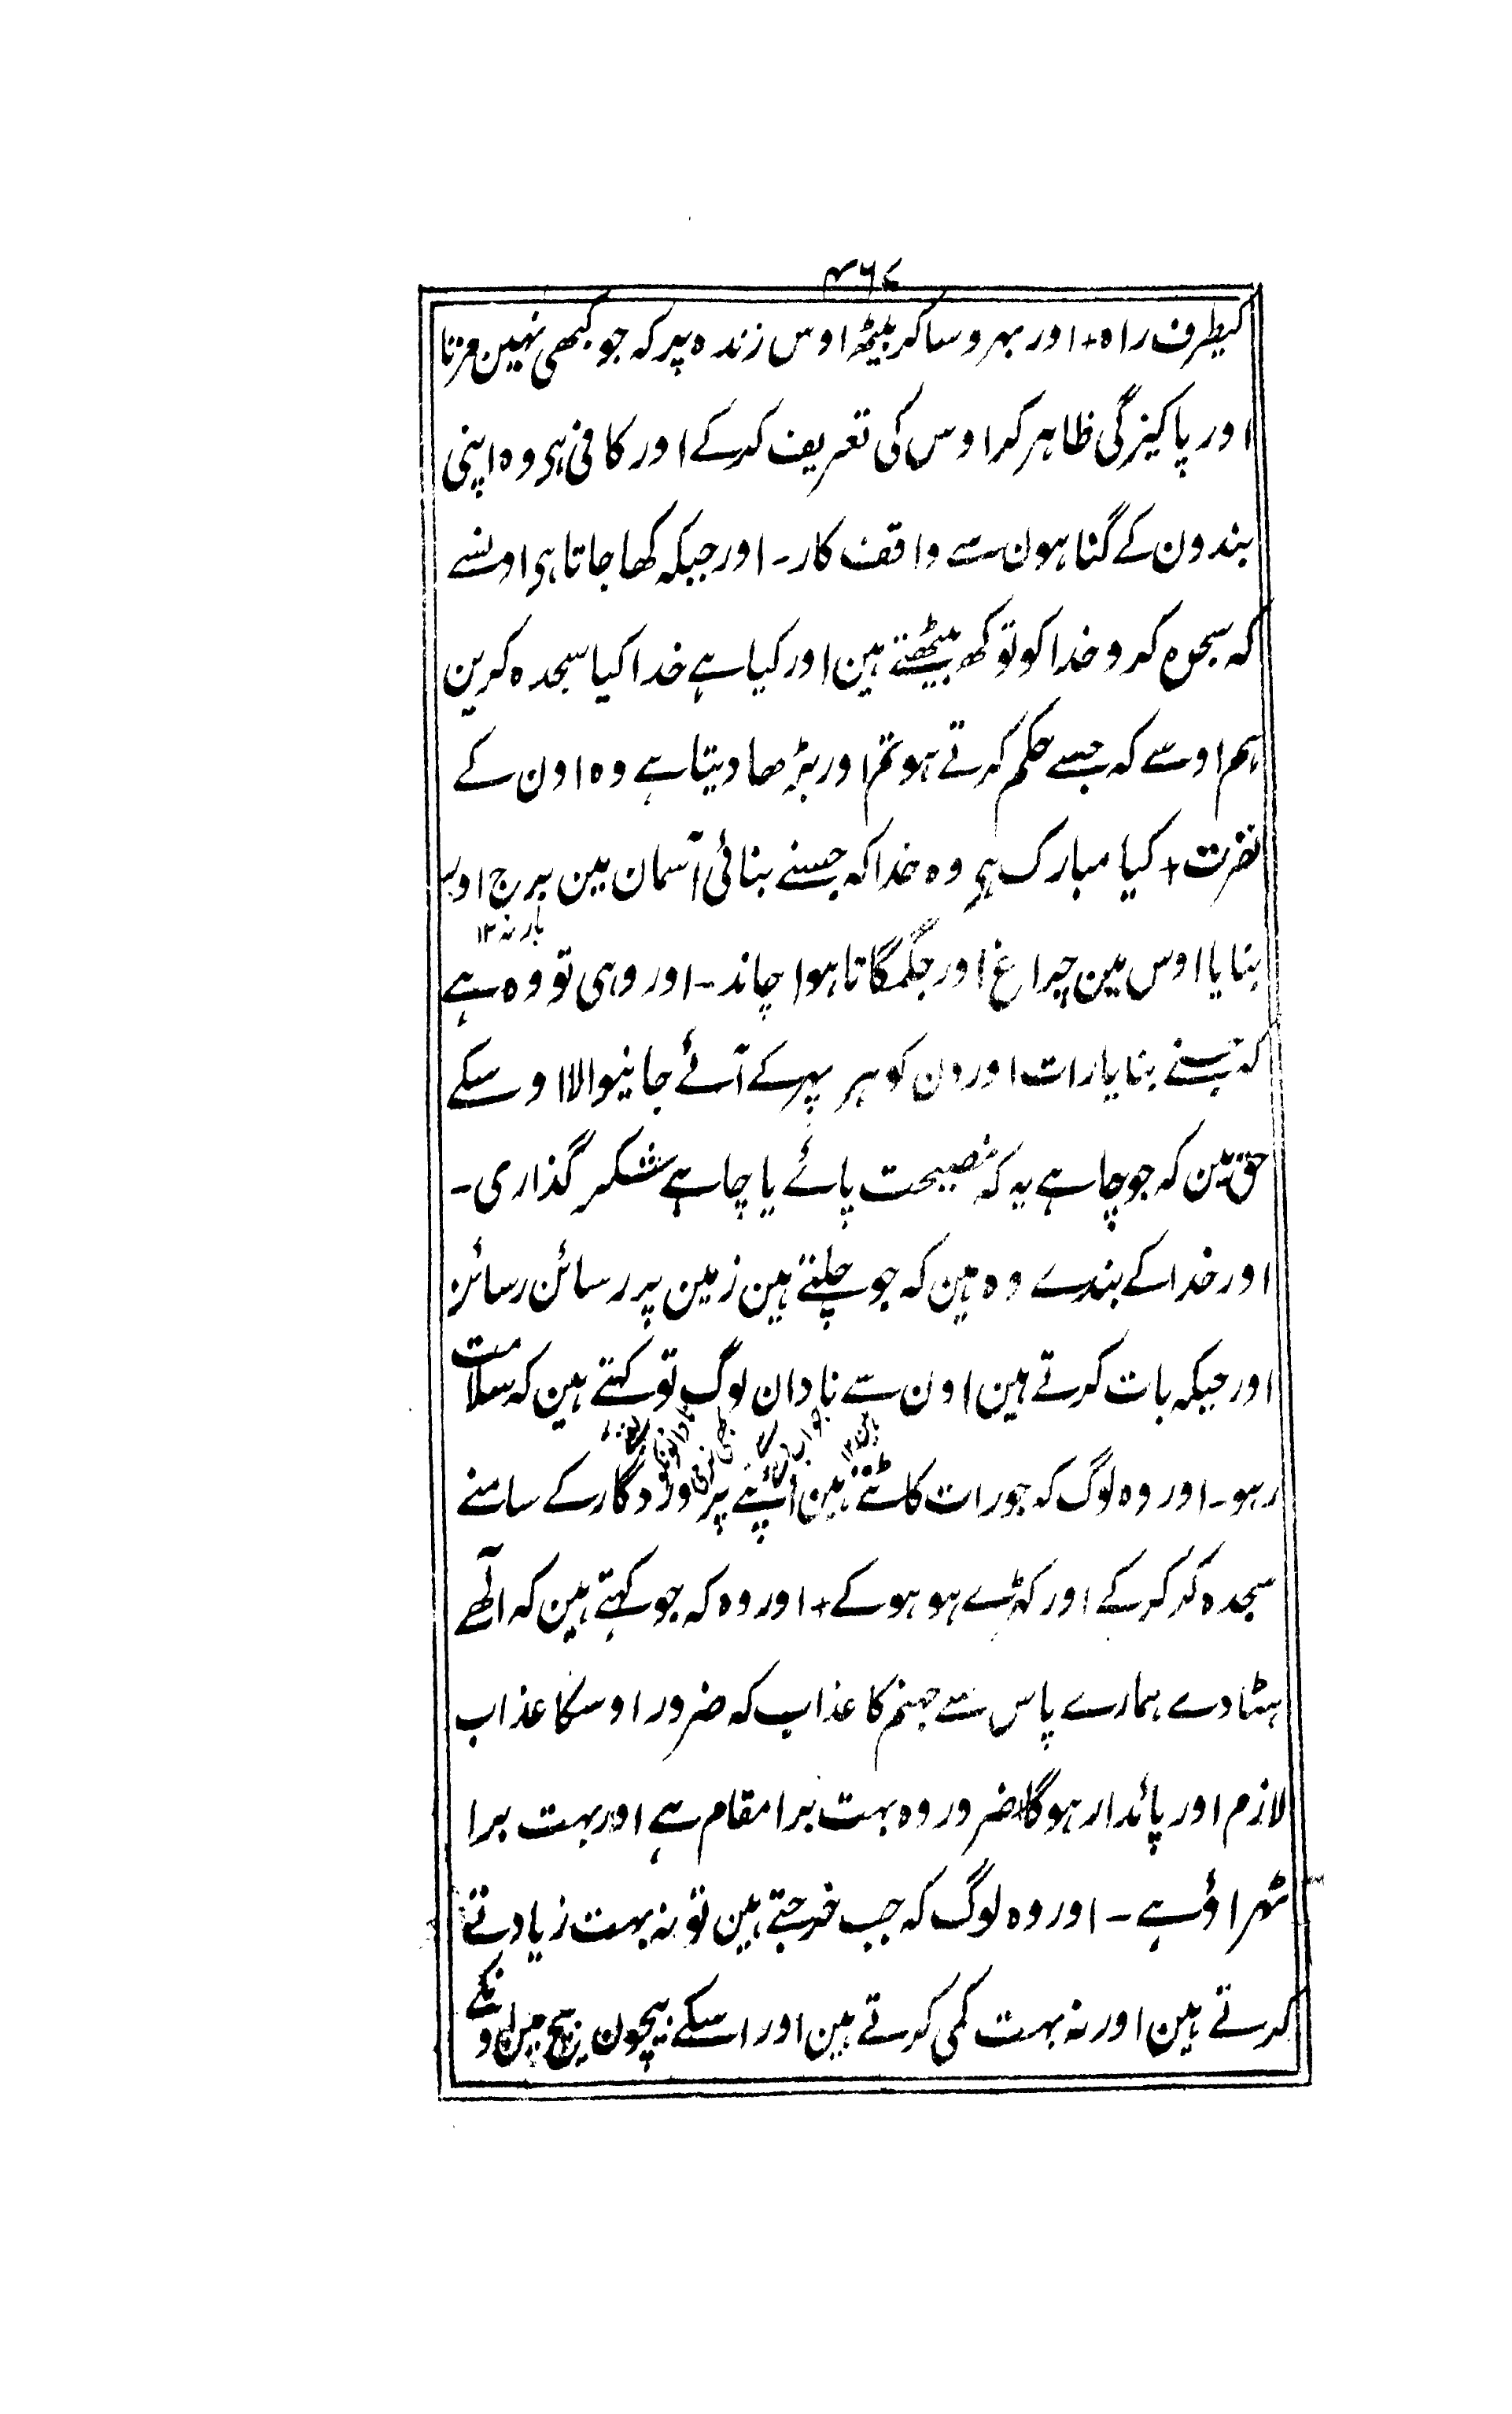 ۴۶۷
کیطرف راہ+ اور بہروسا کر بیٹھ اوس زندہ پر کہ جو کبھی نہین مرتا
اور پاکیزگی ظاہر کر اوس کی تعریف کرکے اور کافی ہی وہ اپنی
بندون کے گناہون سے واقف کار۔ اور جبکہ کھا جاتا ہی اونسے
کہ سجدہ کرو خدا کو تو کھ بیٹھتے ہین اور کیا ہے خدا کیا سجدہ کرین
ہم اوسے کہ جسے حکم کرتے ہو تم اور بڑھا دیتا ہے وہ اون کے
نفرت+ کیا مبارک ہی وہ خدا کہ جسنے بنائی آسمان مین برج اور
بارنہ ۱۲
بنایا اوس مین چراغ اور جگمگاتا ہوا چاند۔ اور وہی تو وہ ہے
کہ جسنے بنایا رات اور دن کو ہر پہر کے آئے جانیوالا اوسکے
حق مین کہ جو چاہے یہ کہ نصیحت پائے یا چاہے شکر گذاری۔
اور خدا کے بندے وہ ہین کہ جو چلتے ہین زمین پر رسائن رسائن
اور جبکہ بات کرتے ہین اون سے نادان لوگ تو کہتے ہین کہ سلامت
رہو۔ اور وہ لوگ کہ جو رات کاٹتے ہین اپنے پروردگار کے سامنے
سجدہ کر کر کے اور کہڑے ہو ہو کے+ اور وہ کہ جو کہتے ہین کہ الٰھے
ہٹا دے ہمارے پاس سے جہنم کا عذاب کہ ضرور اوسکا عذاب
لازم اور پائدار ہوگا+ ضرور وہ بہت برا مقام ہے اور بہت برا
ٹھراؤ ہے۔ اور وہ لوگ کہ جب خرچتے ہین تو نہ بہت زیادتے
کرتے ہین اور نہ بہت کمی کرتے ہین اور اسکے بیچون بیچ مین اونکے